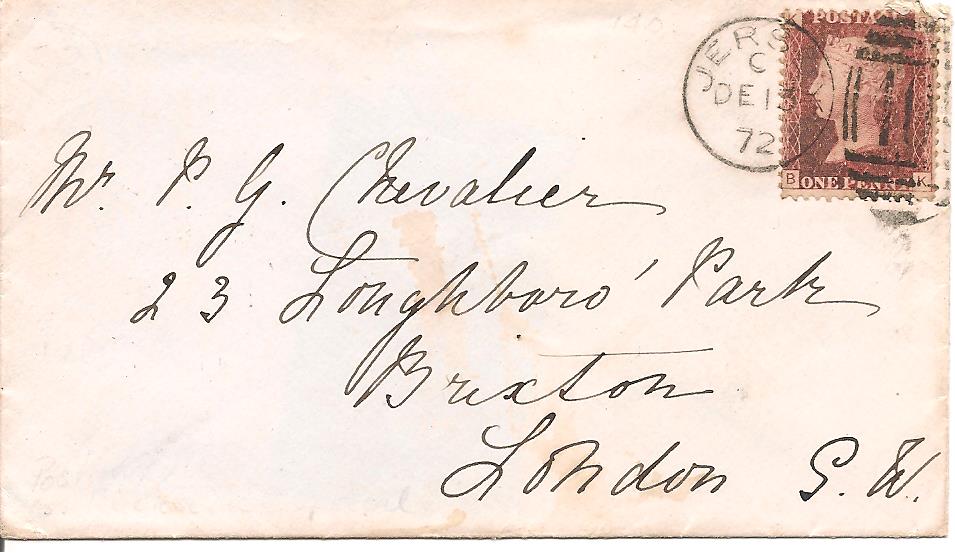 JERS
C
DE 13
72
K
POSTA
B ONE PENNY K
Mr. P. G. Chevalier
23 Loughboro' Park
Brixton
London S.W.